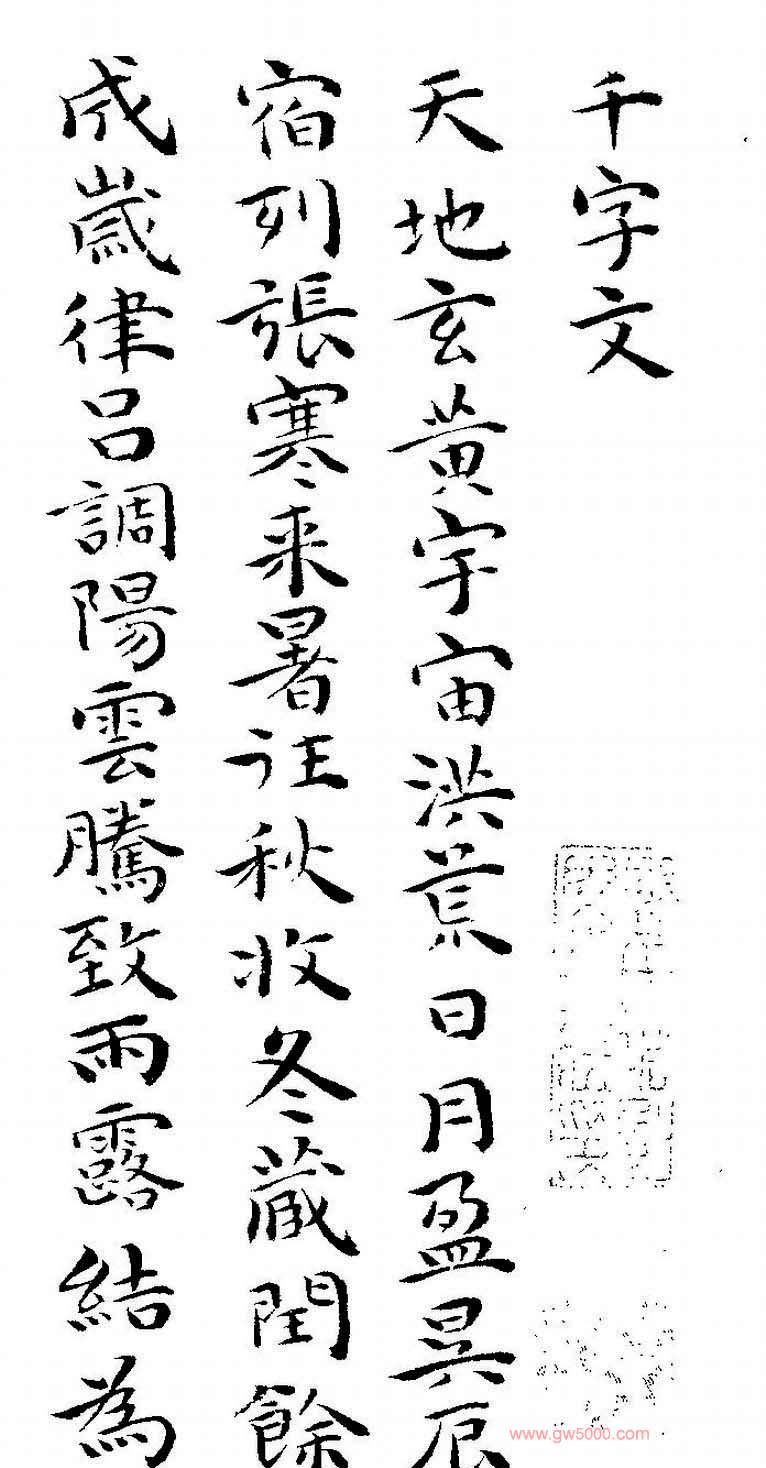 千字文
天地玄黄宇宙洪荒日月盈昃辰
宿列張寒来暑往秋收冬藏閏餘
成歲律吕調陽雲騰致雨露結為
www.gw5000.com